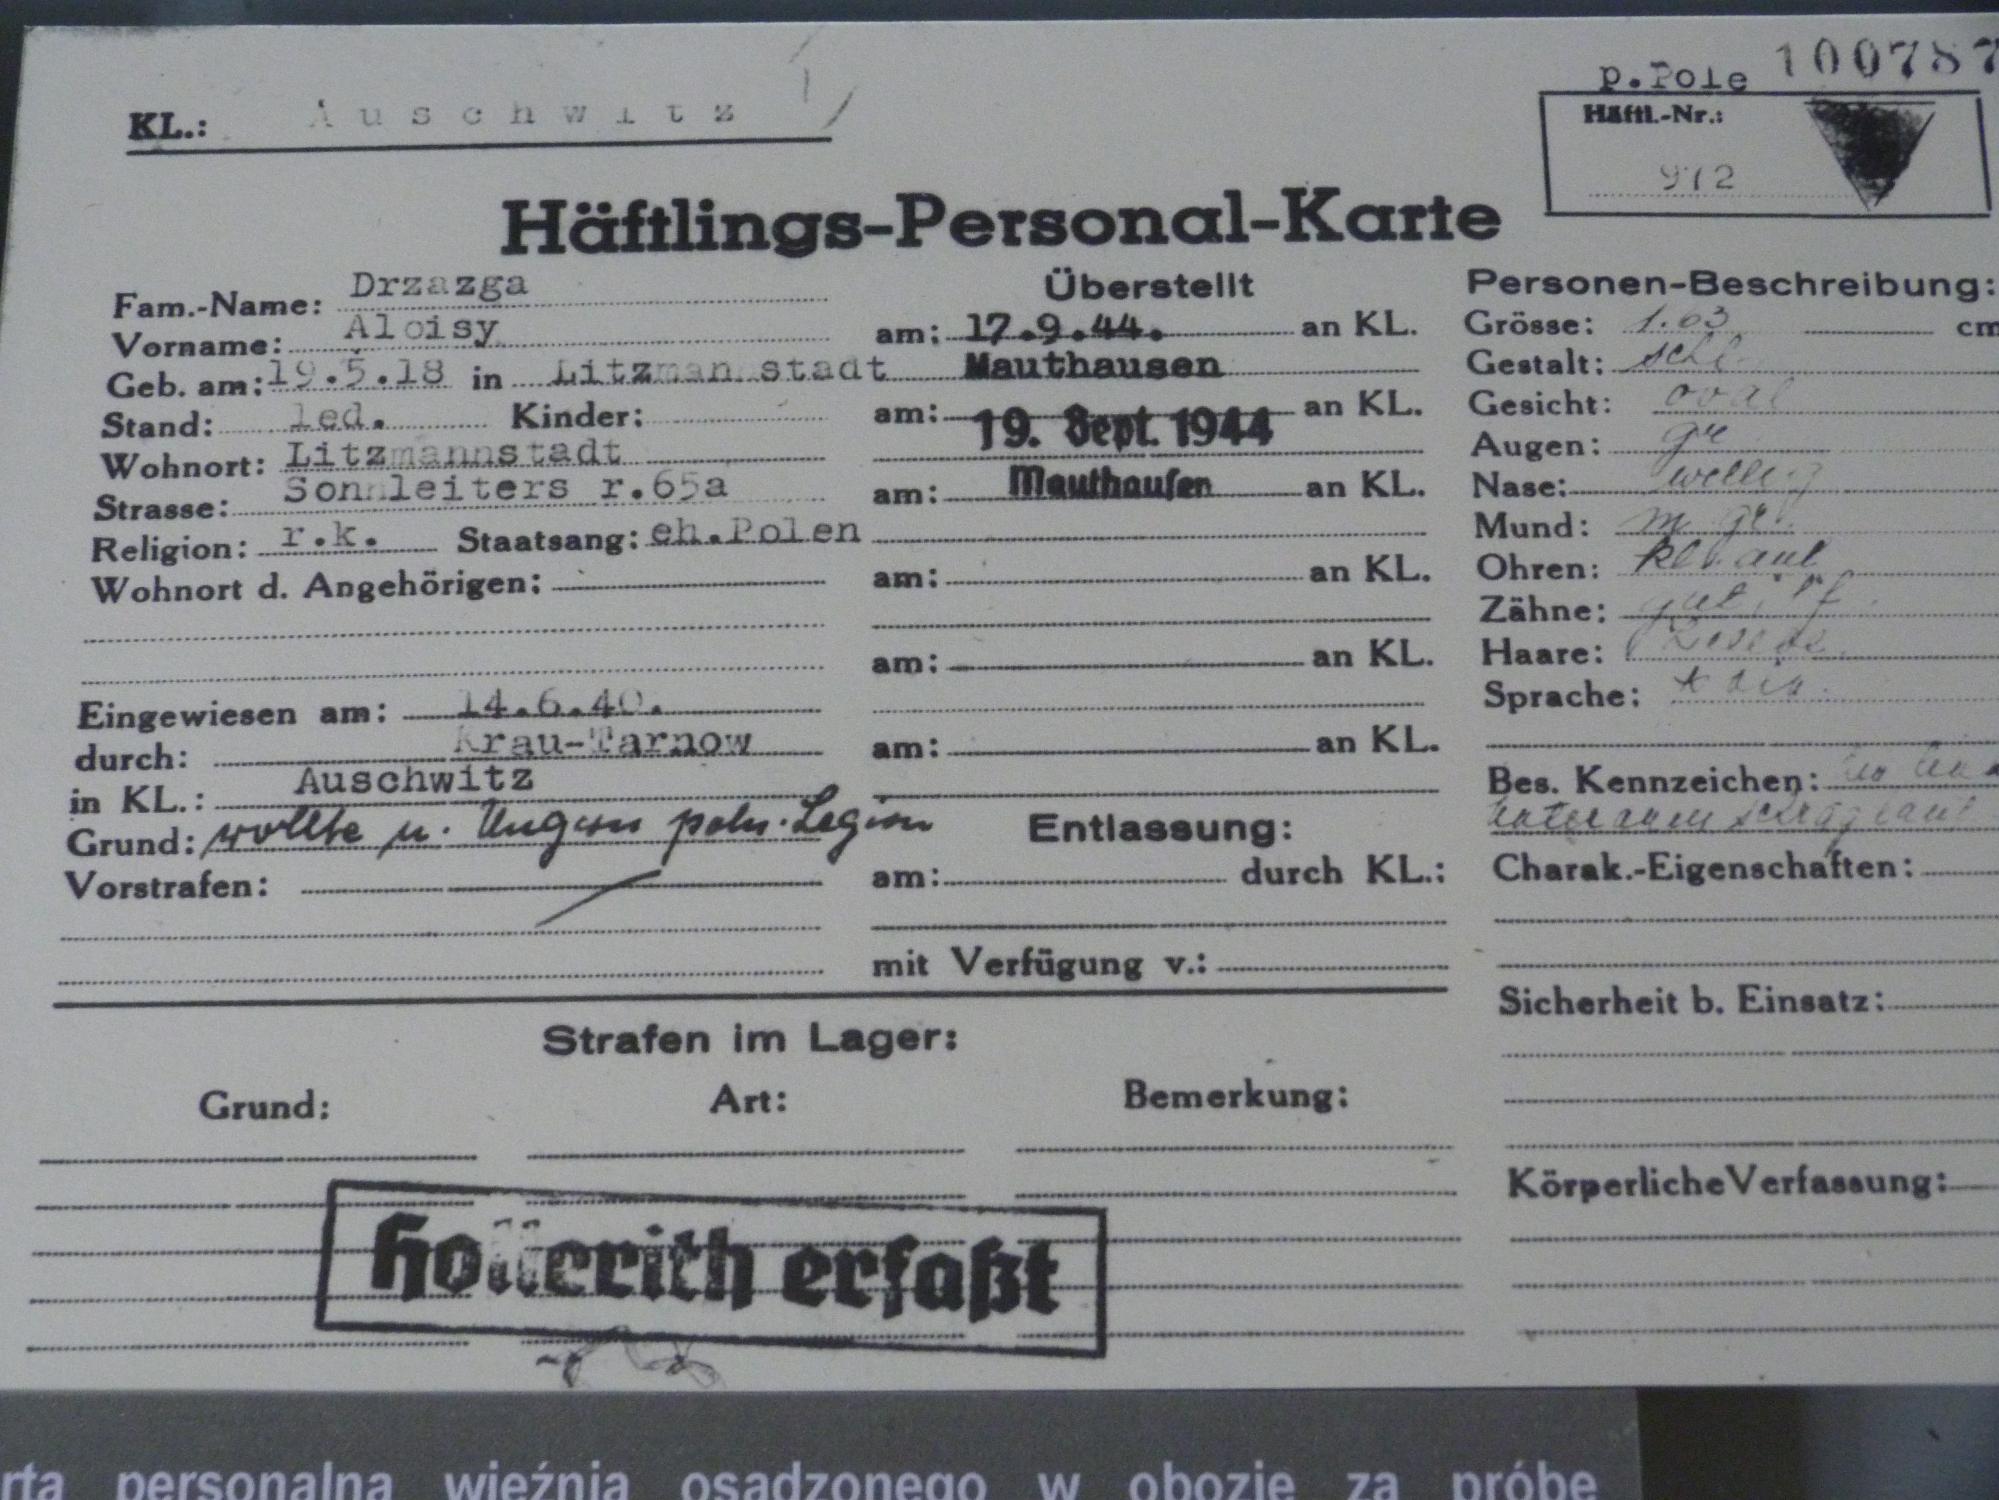 p.Pole 100787
KL.: Auschwitz
Häftl.-Nr.:
972
Häftlings-Personal-Karte
Fam.-Name: Drzazga
Vorname: Aloisy
Geb. am: 19.5.18 in Litzmannstadt
Stand: led. Kinder:
Wohnort: Litzmannstadt
Strasse: Sonnleiters r.65a
Religion: r.k. Staatsang: eh.Polen
Wohnort d. Angehörigen:
Eingewiesen am: 14.6.40.
durch: Krau-Tarnow
in KL.: Auschwitz
Grund: wollte n. Ungarn poln. Legion
Vorstrafen:
Überstellt
am: 17.9.44. an KL.
Mauthausen
am: an KL.
19. Sept. 1944
am: Mauthausen an KL.
am: an KL.
am: an KL.
am: an KL.
Entlassung:
am: durch KL.:
mit Verfügung v.:
Personen-Beschreibung:
Grösse: 1.63 cm
Gestalt: schl.
Gesicht: oval
Augen: gr
Nase: wellig
Mund: m. gr.
Ohren: kl.
Zähne: gut,
Haare:
Sprache:
Bes. Kennzeichen:
Charak.-Eigenschaften:
Sicherheit b. Einsatz:
Körperliche Verfassung:
Strafen im Lager:
Grund: Art: Bemerkung:
Hollerith erfaßt
rta personalna więźnia osadzonego w obozie za próbę